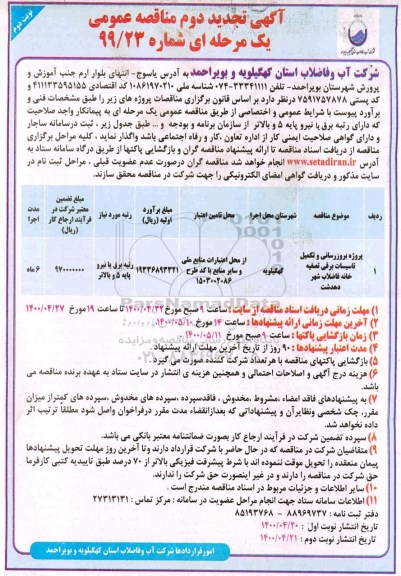 نوبت دوم
آگهی تجدید دوم مناقصه عمومی
یک مرحله ای شماره ۹۹/۲۳
شرکت آب وفاضلاب استان کهگیلویه و بویراحمد به آدرس یاسوج- انتهای بلوار ارم جنب آموزش و
پرورش شهرستان بویراحمد- تلفن ۳۳۳۴۱۱۱۱-۰۷۴ شناسه ملی ۱۰۸۶۱۹۷۰۲۱۰ کد اقتصادی ۴۱۱۱۳۳۵۹۵۱۵۵ و
کد پستی ۷۵۹۱۷۵۷۸۷۸ درنظر دارد بر اساس قانون برگزاری مناقصات پروژه های زیر را طبق مشخصات فنی و
برآورد پیوست با شرایط عمومی و اختصاصی از طریق مناقصه عمومی یک مرحله ای به پیمانکار واجد صلاحیت
که دارای رتبه برق یا نیرو پایه ۵ و بالاتر از سازمان برنامه و بودجه و ... طبق جدول زیر ، ثبت درسامانه ساجار
و دارای گواهی صلاحیت ایمنی کار از اداره تعاون ،کار و رفاه اجتماعی باشد واگذار نماید ، کلیه مراحل برگزاری
مناقصه از دریافت اسناد مناقصه تا ارائه پیشنهاد مناقصه گران و بازگشایی پاکتها از طریق درگاه سامانه ستاد به
آدرس www.setadiran.ir انجام خواهد شد مناقصه گران درصورت عدم عضویت قبلی ، مراحل ثبت نام در
سایت مذکور و دریافت گواهی امضای الکترونیکی را جهت شرکت در مناقصه محقق سازند.
ردیف موضوع مناقصه شهرستان محل اجرا محل تامین اعتبار مبلغ برآورد اولیه (ریال) رتبه مورد نیاز مبلغ تضمین معتبر شرکت در فرآیند ارجاع کار (ریال) مدت اجرا
۱ پروژه بروزرسانی و تکمیل تاسیسات برقی تصفیه خانه فاضلاب شهر دهدشت کهگیلویه از محل اعتبارات منابع ملی و سایر منابع با کد طرح ۱۵۰۳۰۰۲۰۸۶ ۱۹۳۳۶۸۹۳۳۲۱ رتبه برق یا نیرو پایه ۵ وبالاتر ۹۷۰۰۰۰۰۰۰ ۶ ماه
۱) مهلت زمانی دریافت اسناد مناقصه از سایت: ساعت ۹ صبح مورخ ۱۴۰۰/۰۴/۲۲ تا ساعت ۱۹ مورخ ۱۴۰۰/۰۴/۲۷
۲) آخرین مهلت زمانی ارائه پیشنهادها: ساعت ۱۴ مورخ ۱۴۰۰/۰۵/۱۰
۳) زمان بازگشایی پاکتها : ساعت ۹ صبح مورخ ۱۴۰۰/۰۵/۱۱
۴) مدت اعتبار پیشنهادها : ۹۰ روز از تاریخ آخرین مهلت ارائه پیشنهاد.
۵) بازگشایی پاکتهای مناقصه با هر تعداد شرکت کننده صورت می گیرد.
۶) هزینه درج آگهی و اصلاحات احتمالی و همچنین هزینه ی انتشار در سایت ستاد به عهده برنده مناقصه می
باشد.
۷) به پیشنهادهای فاقد امضاء ،مشروط ،مخدوش ، فاقدسپرده ،سپرده های مخدوش ،سپرده های کمتراز میزان
مقرر، چک شخصی ونظایرآن و پیشنهاداتی که بعدازانقضاء مدت مقرر درفراخوان واصل شود مطلقا ترتیب اثر
داده نخواهد شد.
۸) سپرده تضمین شرکت در فرآیند ارجاع کار بصورت ضمانتنامه معتبر بانکی می باشد.
۹) متقاضیان شرکت در مناقصه که در حال حاضر با شرکت قرارداد دارند وتا آخرین روز مهلت تحویل پیشنهادها
پیمان منعقده را تحویل موقت ننموده اند با شرط پیشرفت فیزیکی بالاتر از ۷۰ درصد طبق تاییدیه کتبی کارفرما
حق شرکت در مناقصه را دارند و در غیر اینصورت حق شرکت را ندارند.
۱۰) سایر اطلاعات و جزئیات مربوط در اسناد مناقصه مندرج است .
۱۱) اطلاعات سامانه ستاد جهت انجام مراحل عضویت در سامانه : مرکز تماس : ۲۷۳۱۳۱۳۱
دفتر ثبت نامه : ۸۸۹۶۹۷۳۷ - ۸۵۱۹۳۷۶۸
تاریخ انتشار نوبت اول : ۱۴۰۰/۰۴/۲۰
تاریخ انتشار نوبت دوم : ۱۴۰۰/۰۴/۲۱
امورقراردادها شرکت آب وفاضلاب استان کهگیلویه و بویراحمد